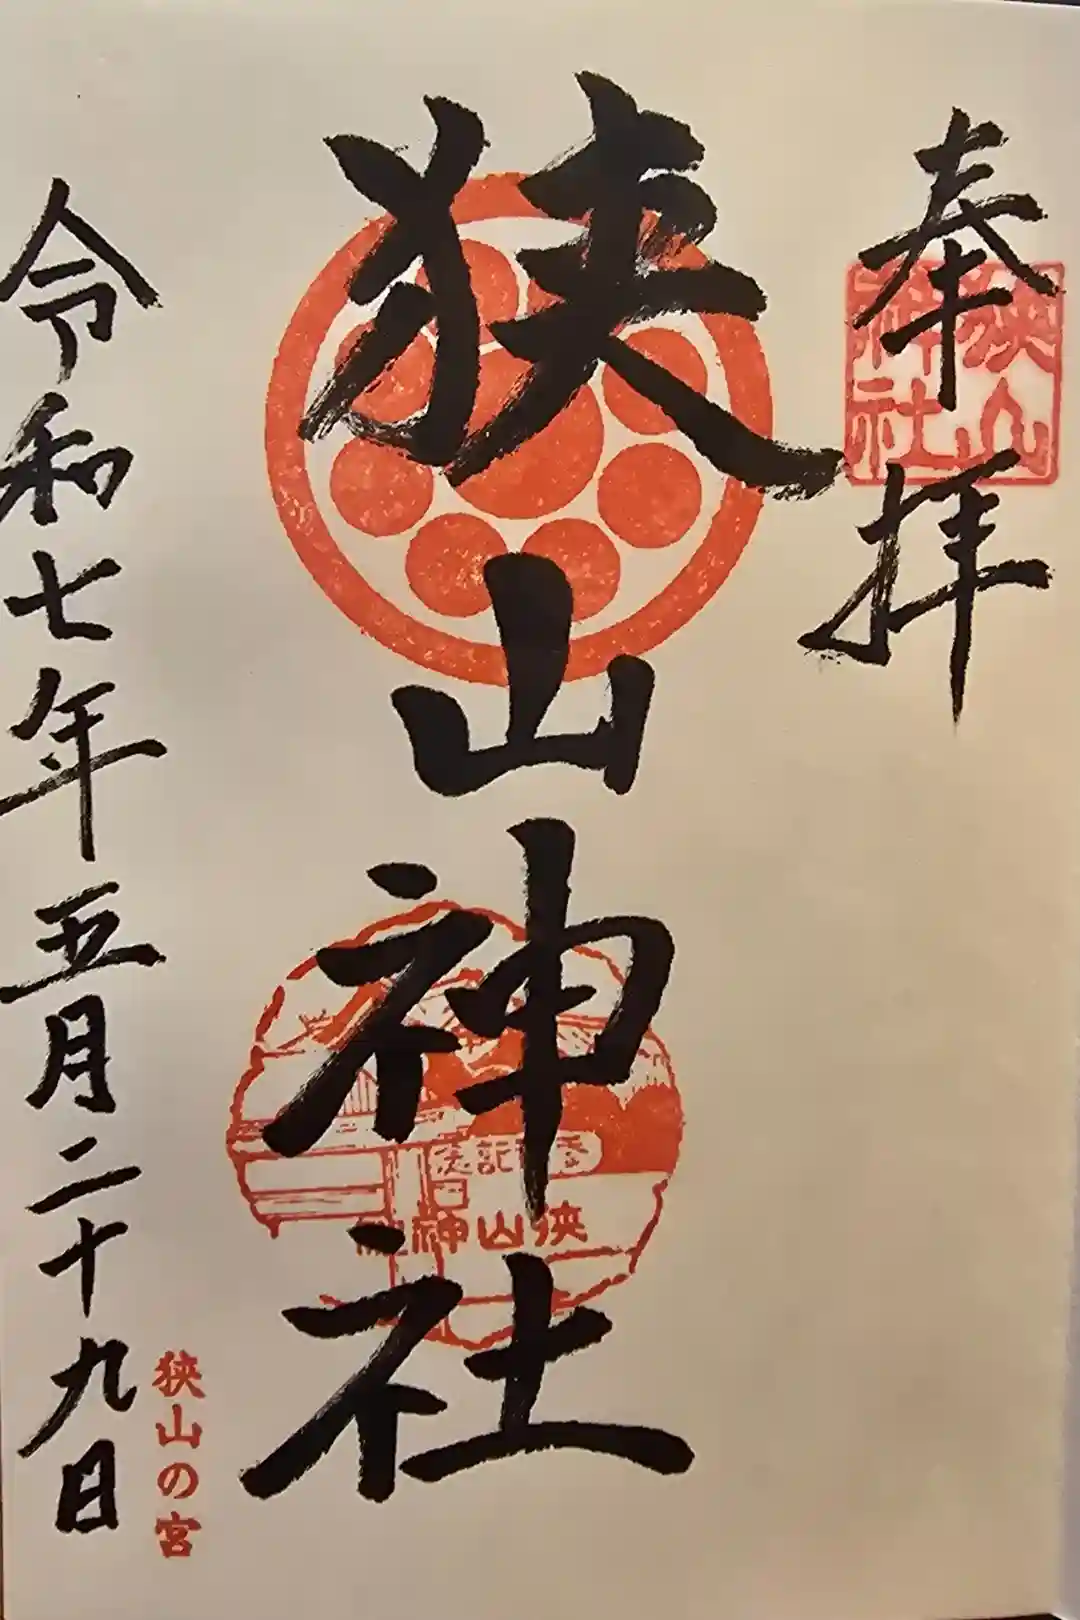 奉拝
狭山
神社
狭山神社
参拝記念
狭山神社
狭山の宮
令和七年五月二十九日